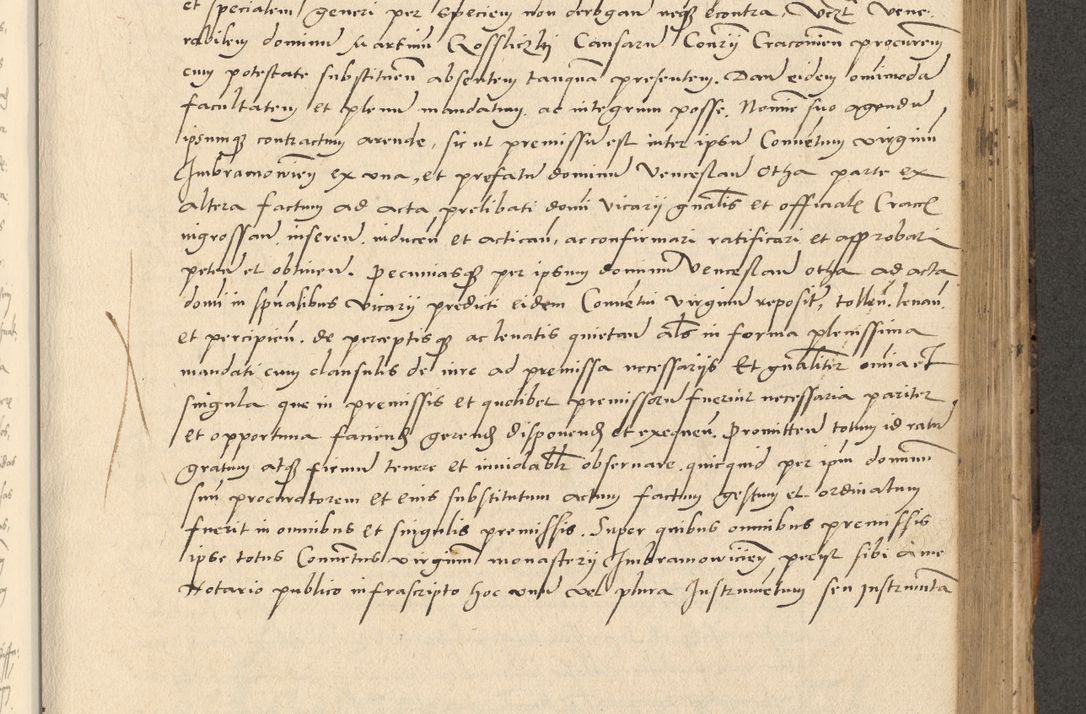 et specialem generi per speciem non derogan neq(ue) econtra, Veru Vene
rabilem dominu Martinu Cansaru Consy Cracovien procurem
cum potestate substituen absentem tanqua presentem. Dan eidem omimoda
facultatem et plenu mandatum. ac integrum posse. Nomie suo agendu
ipsumq contractum arende, sic ut premissu est inter ipsu Conuetum virginu
Imbramowien ex vna, et prefatu dominu Venceslau Otha parte ex
altera factum ad acta prelibati domi vicarii gnalis et official Crac
ingrossan. inseren. inducen et actican, ac confirmari ratificari et approbari
peten et obtinen. Pecuniasq per ipsum dominu Venceslau otha ad acta
domi in spualibus vicarii predicti eidem Conuetui virginu reposit, tollen. leuan.
et percipien. de perceptisq ac leuatis quietan als in forma plenissima
mandati cum clausulis de iure ad premissa necessariis Et gnaliter omia et
singula que in premissis et quolibet premissoru fuerint necessaria pariter
et opportuna faciend gerend disponend et exequen. Promitten totum id ratu
gratum atq firmu tenere et inuiolabilr obseruare. quicquid per ipm dominu
suu procuratorem et eius substitutum actum factum gestum et ordinatum
fuerit in omnibus et singulis premissis. Super quibus omnibus premissis
ipse totus Conuetus virginu monasterii Imbramowicien, peciit sibi a me
Notario publico infrascripto hoc vnu vel plura Instrumetum seu Instrumeta